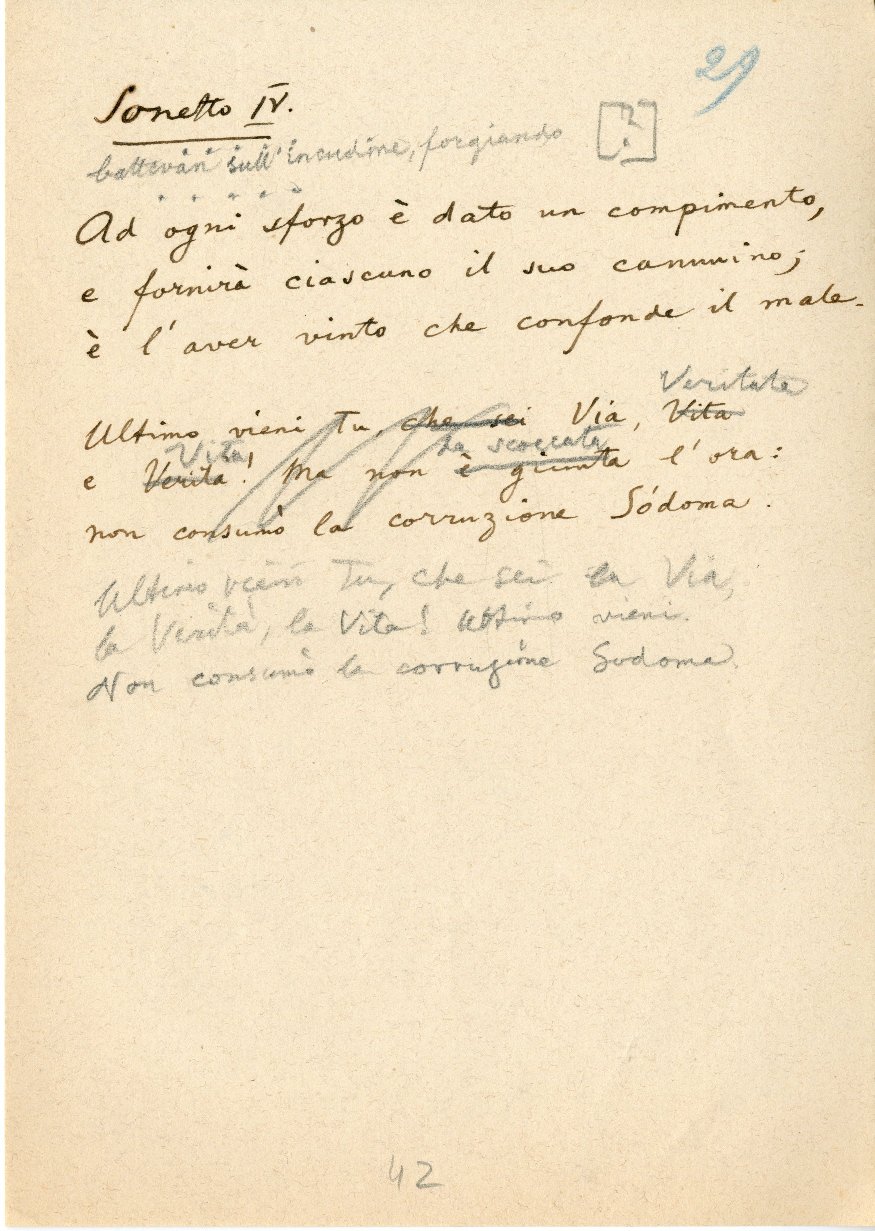 29
Sonetto IV.
battevan sull'incudine, forgiando [?]
Ad ogni sforzo è dato un compimento,
e fornirà ciascuno il suo cammino;
è l'aver vinto che confonde il male.
Veritate
Ultimo vieni Tu, che sei Via, Vita
Vita ha scoccata
e Verita! Ma non è giunta l'ora:
non consumò la corruzione Sódoma.
Ultimo vieni Tu, che sei la Via,
la Verità, la Vita! Ultimo vieni.
Non consumò la corruzione Sodoma.
42